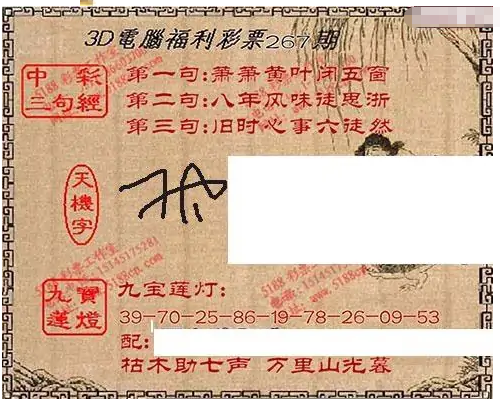 3D電腦福利彩票267期
中彩
三句經
第一句:萧萧黄叶闭五窗
第二句:八年风味徒思浙
第三句:旧时心事六徒然
天機字
九寳
蓮燈
九宝莲灯:
39-70-25-86-19-78-26-09-53
配:
枯木助七声 万里山光暮
5188 彩票工作室
15145175281
5188cp.com